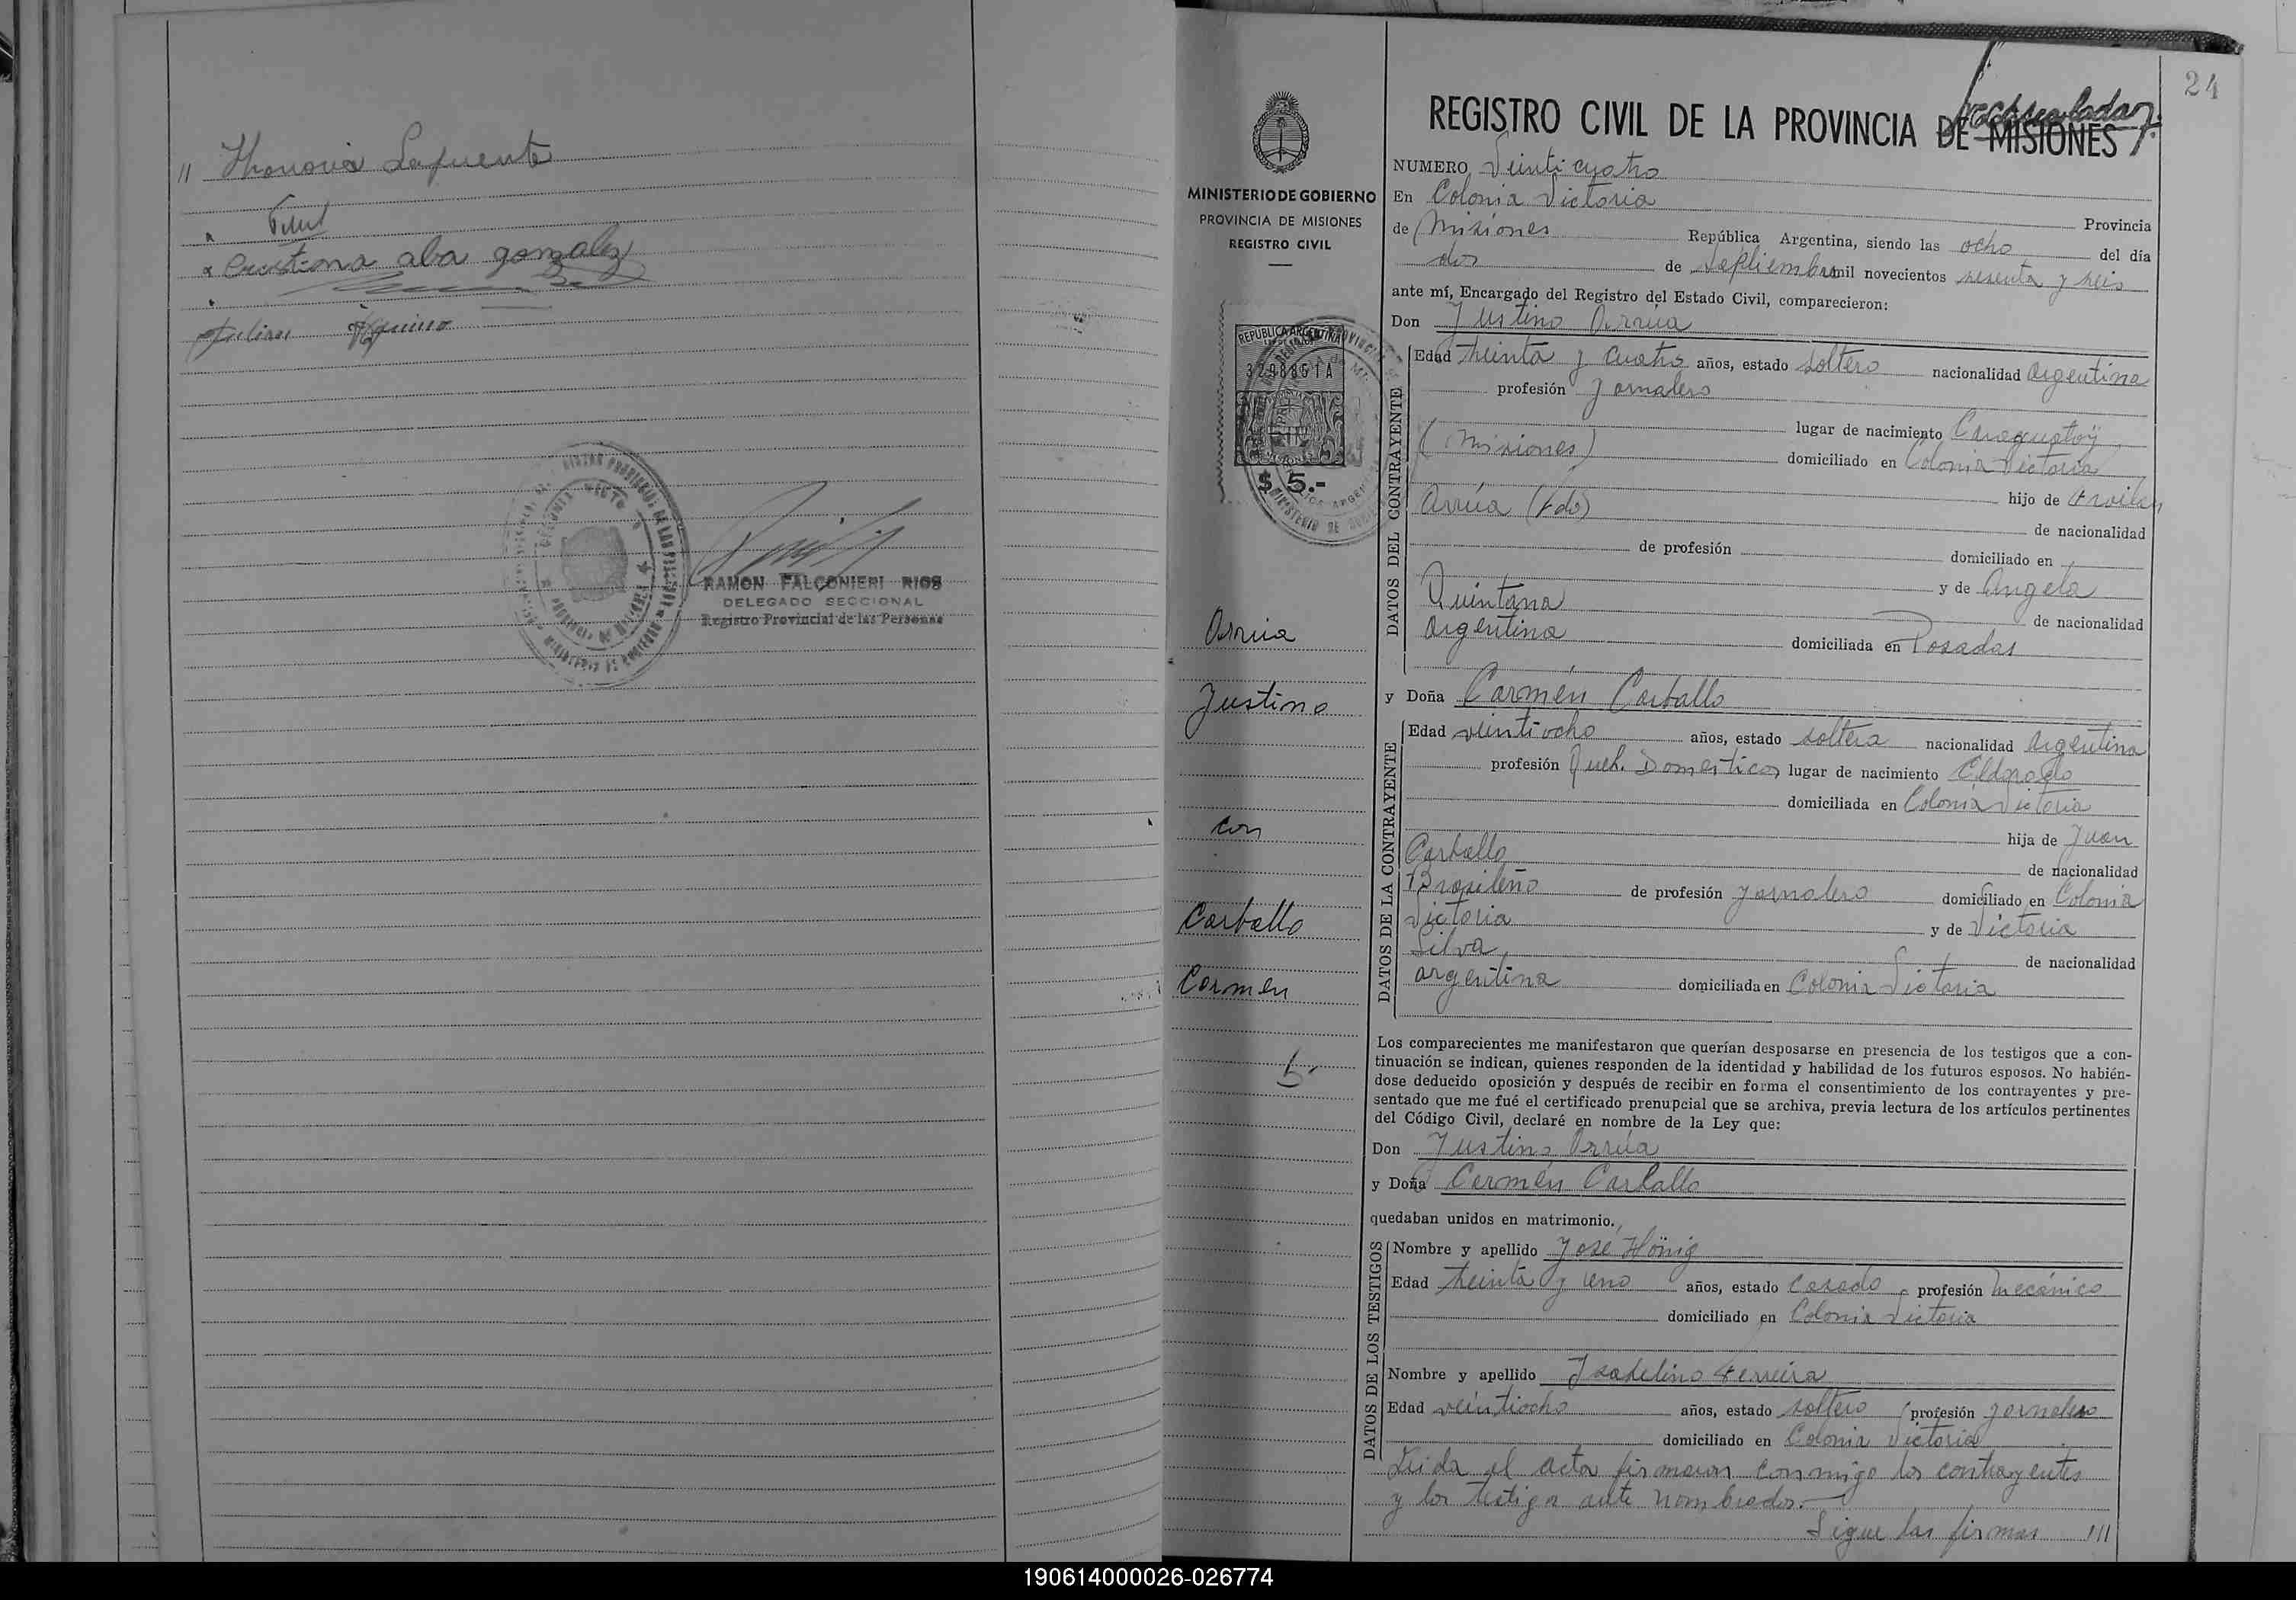 " Honoria Lafuente
" Cristina alba gonzalez
"
RAMON FALCONIERI RIOS
DELEGADO SECCIONAL
Registro Provincial de las Personas
24
REGISTRO CIVIL DE LA PROVINCIA DE MISIONES
MINISTERIO DE GOBIERNO
PROVINCIA DE MISIONES
REGISTRO CIVIL
REPUBLICA ARGENTINA
3298851A
$ 5.-
Arrua
Justino
con
Carballo
Carmen
NUMERO Veinticuatro
En Colonia Victoria
Provincia
de Misiones República Argentina, siendo las ocho del día
dos de Septiembre mil novecientos sesenta y seis
ante mí, Encargado del Registro del Estado Civil, comparecieron:
Don Justino Arrúa
DATOS DEL CONTRAYENTE
Edad treinta y cuatro años, estado soltero nacionalidad argentina
profesión Jornalero
lugar de nacimiento Caraguatay
(Misiones) domiciliado en Colonia Victoria
hijo de
Arrúa (Fdo)
de nacionalidad
de profesión domiciliado en
y de Angela
Quintana
de nacionalidad
argentina domiciliada en Posadas
y Doña Carmén Carballo
DATOS DE LA CONTRAYENTE
Edad veintiocho años, estado soltera nacionalidad argentina
profesión Queh. Domesticos lugar de nacimiento Eldorado
domiciliada en Colonia Victoria
hija de Juan
Carballo
de nacionalidad
Brasileño de profesión jornalero domiciliado en Colonia
Victoria y de Victoria
Silva
de nacionalidad
argentina domiciliada en Colonia Victoria
Los comparecientes me manifestaron que querían desposarse en presencia de los testigos que a con-
tinuación se indican, quienes responden de la identidad y habilidad de los futuros esposos. No habién-
dose deducido oposición y después de recibir en forma el consentimiento de los contrayentes y pre-
sentado que me fué el certificado prenupcial que se archiva, previa lectura de los artículos pertinentes
del Código Civil, declaré en nombre de la Ley que:
Don Justino Arrúa
y Doña Carmén Carballo
quedaban unidos en matrimonio.
DATOS DE LOS TESTIGOS
Nombre y apellido José Hönig
Edad treinta y uno años, estado casado profesión mecánico
domiciliado en Colonia Victoria
Nombre y apellido Isabelino Ferreira
Edad veintiocho años, estado soltero profesión jornalero
domiciliado en Colonia Victoria
Leida el acta firmaron conmigo los contrayentes
y los testigos ante nombrados.
Sigue las firmas ///
190614000026-026774